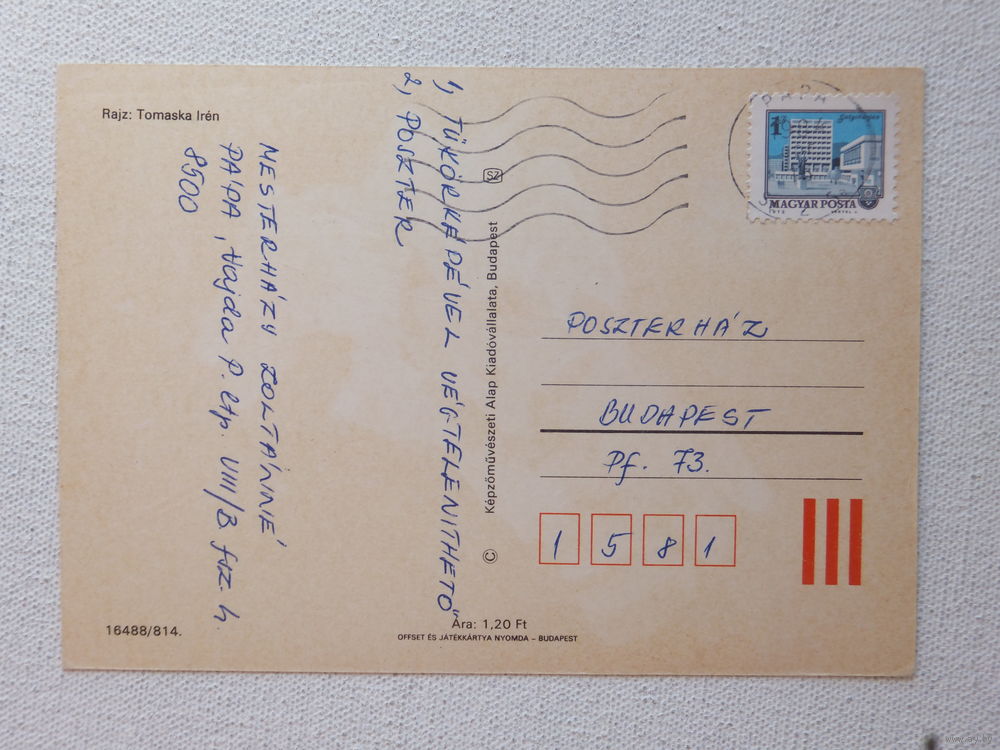 Rajz: Tomaska Irén
1, TÜKÖRKÉPÉVEL VÉGTELENITHETŐ
2, POSZTER
MESTERHÁZY ZOLTÁNNÉ
PÁPA, Hajda P. ltp. VIII/B fsz. 4.
8500
16488/814.
SZ
Képzőművészeti Alap Kiadóvállalata, Budapest
©
Ára: 1,20 Ft
OFFSET ÉS JÁTÉKKÁRTYA NYOMDA – BUDAPEST
PÁPA
1 Ft
MAGYAR POSTA
POSZTERHÁZ
BUDAPEST
Pf. 73.
1 5 8 1
www.ay.by